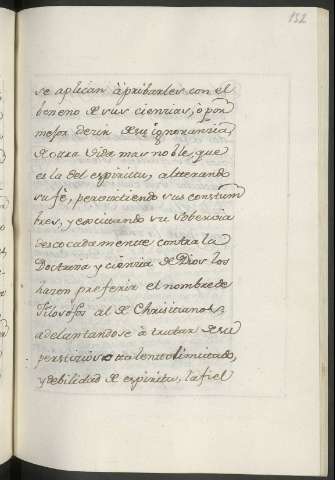 132
se aplican à pribarles con el
beneno de sus cienzias, ò por
mejor dezir de su ignoranzia
de outra vida mas noble, que
es la del espiritu, alterando
su fè, perbirtiendo sus costum
bres, y excitando su soberbia
descocadamente contra la
Doctrina y cienzia de Dios los
hazen preferir el nombre de
Filosofos al de Christianos,
adelantandose à tratar de su
persticiosos talento limitado,
y debilidad de espiritu, la fiel